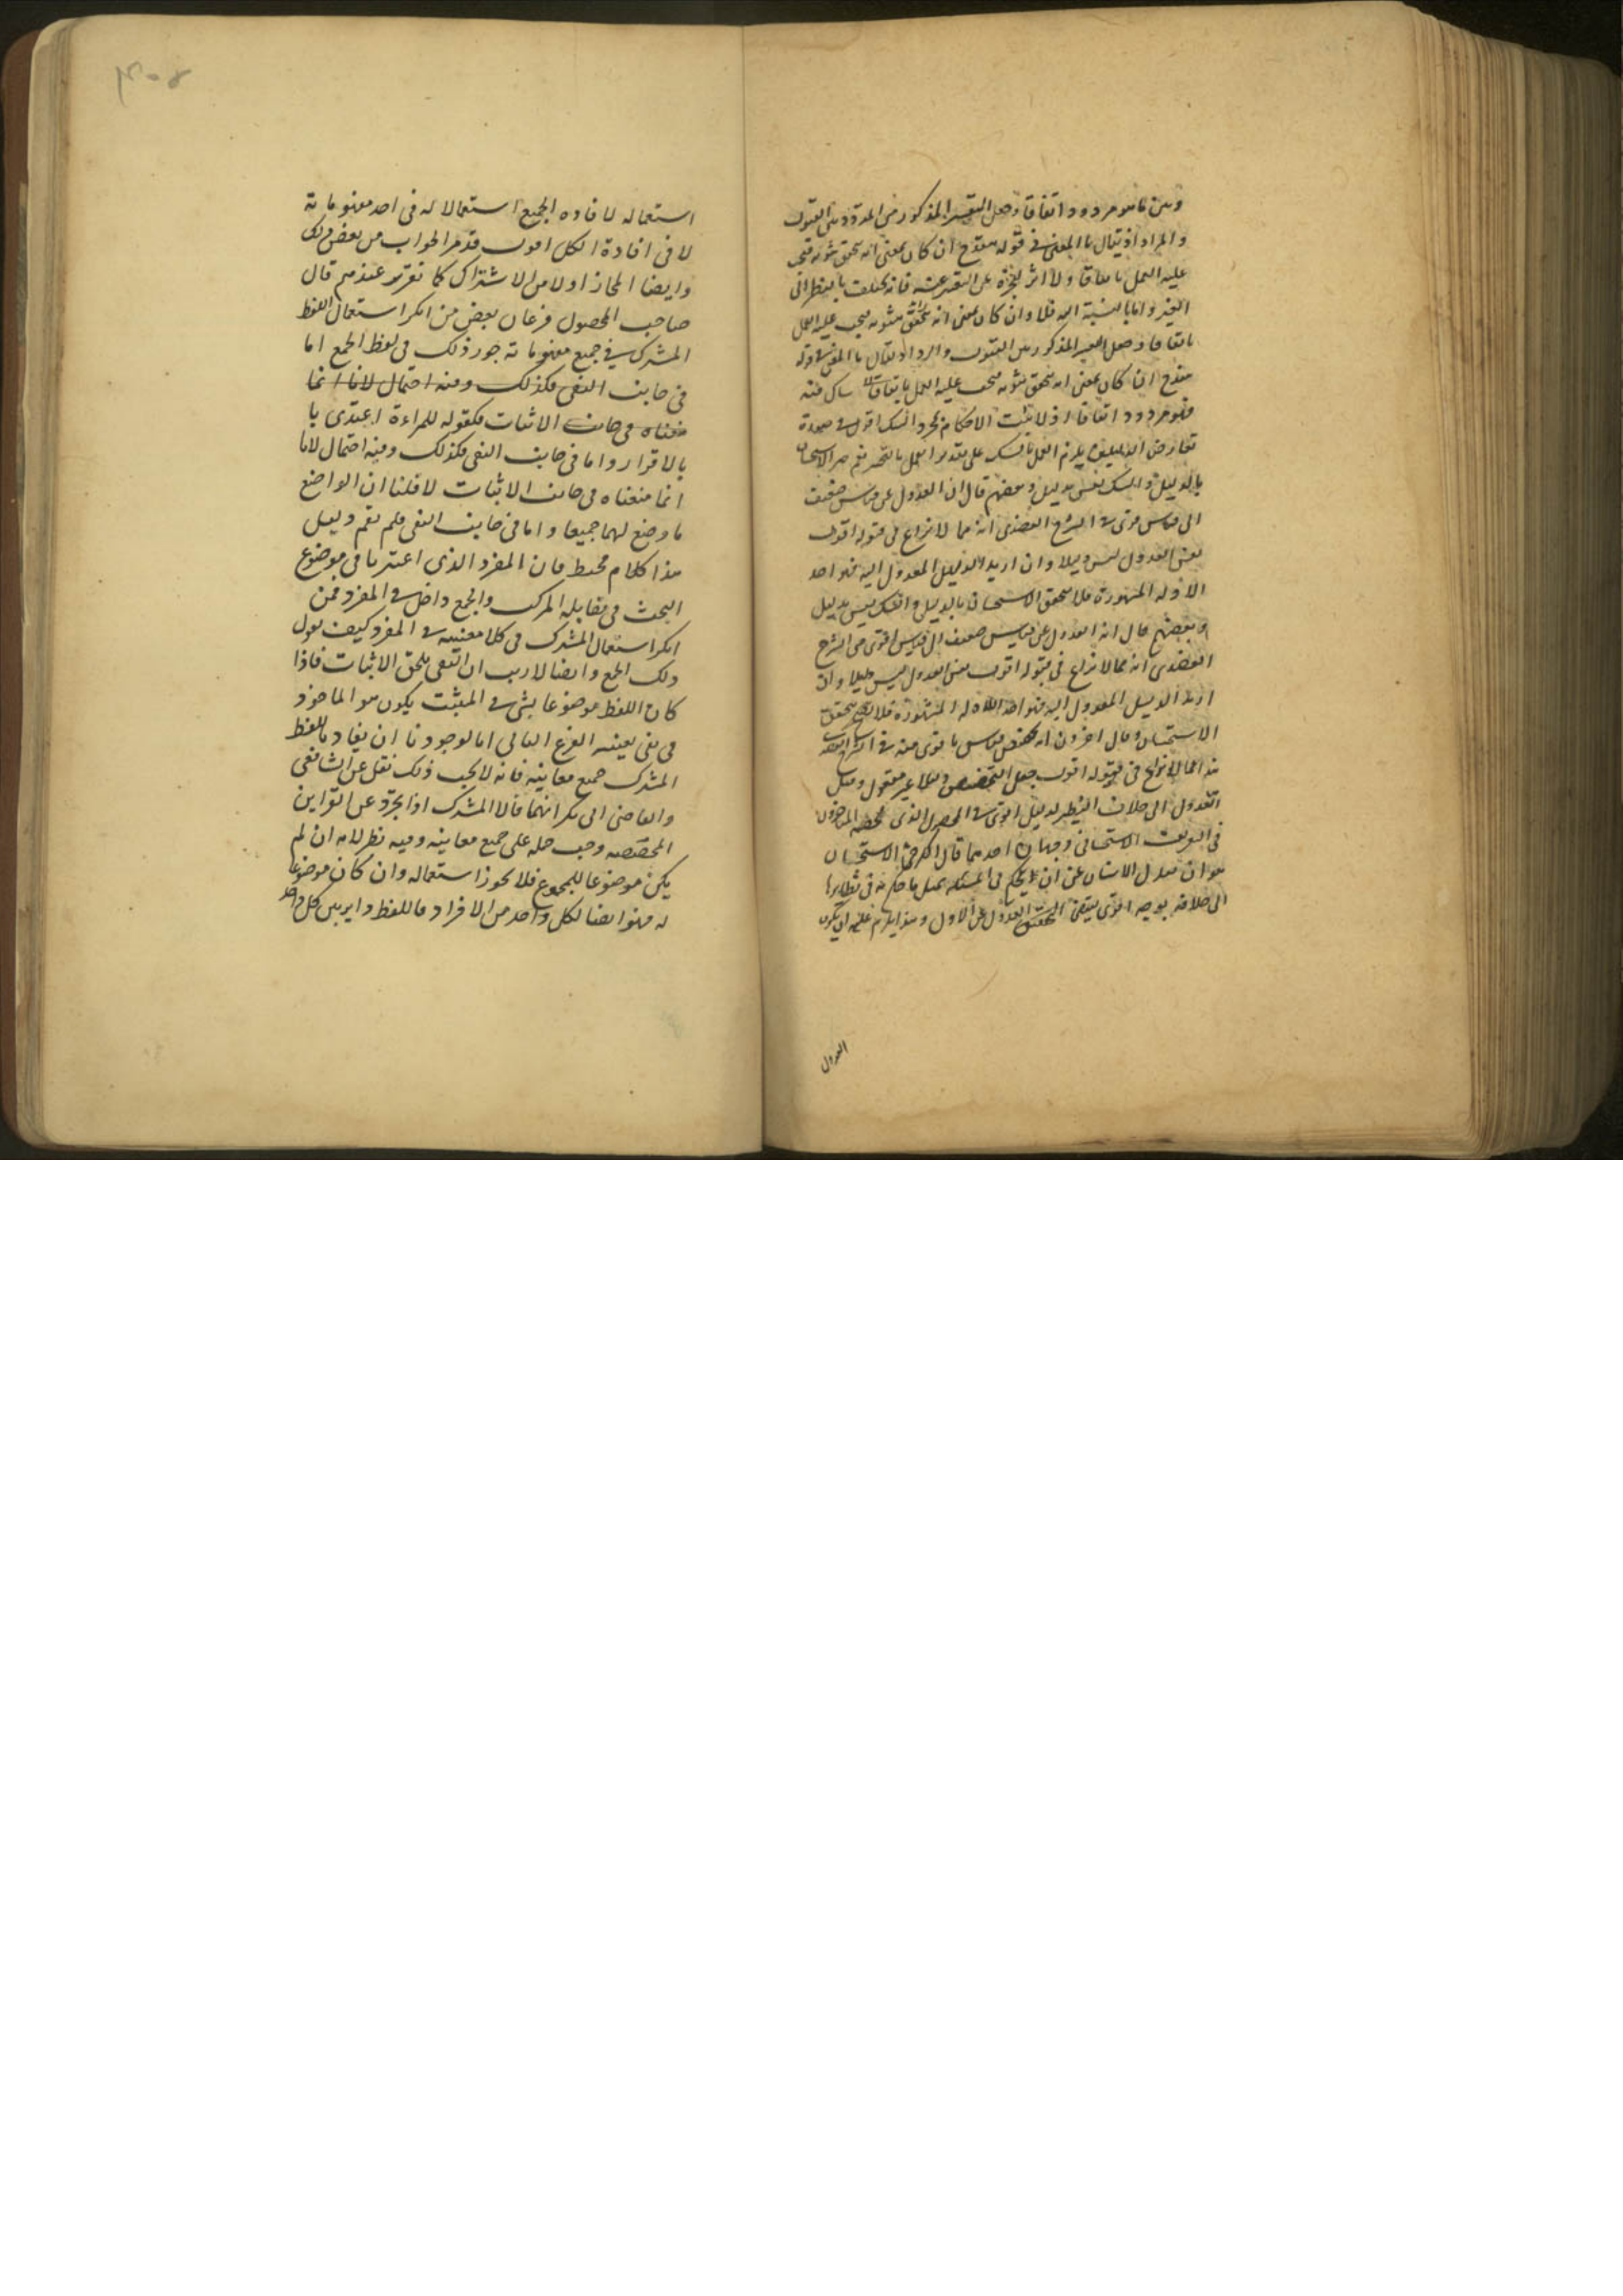 وبين ما هو مردود اتفاقا وجعل التفسير المذكور من المردود بين القبول
والمراد اذ يقال ما المعنى في قوله ينقدح ان كان بمعنى انه يتحقق ثبوته فيجب
عليه العمل اتفاقا ولا اثر لعجزه عن التعبير عنه فانه يختلف بالنظر الى
الغير واما بالنسبة اليه فلا وان كان بمعنى انه يتحقق ثبوته فيجب عليه العمل
اتفاقا وجعل التفسير المذكور بين القبول والرد اذ يقال ما المعنى في قوله
ينقدح ان كان بمعنى انه يتحقق ثبوته فيجب عليه العمل اتفاقا شاك فيه
فهو مردود اتفاقا اذ لا تثبت الاحكام بمجرد الشك اقول في صورة
تعارض الدليلين يلزم العمل بالشك على تقدير العمل بالتخيير نعم الاستحسان
بالدليل والشك ليس بدليل وبعضهم قال ان العدول عن قياس ضعيف
الى قياس قوى في الشرح العضدى انه مما لا نزاع في قبوله اقول
نفس العدول ليس دليلا وان اريد الدليل المعدول اليه فهو احد
الادلة المشهورة فلا يتحقق الاستحسان بالدليل والشك ليس بدليل
وبعضهم قال انه العدول عن قياس ضعيف الى قياس اقوى في الشرح
العضدى انه مما لا نزاع في قبوله اقول نفس العدول ليس دليلا وان
اريد الدليل المعدول اليه فهو احد الادلة المشهورة فلا يتحقق
الاستحسان وقال اخرون انه تخصيص قياس باقوى منه في الشرح
هذا مما لا نزاع في قبوله اقول جعل التخصيص دليلا غير معقول وقيل
العدول الى خلاف النظير لدليل اقوى في المحصول الذى لخصه المتاخرون
في تعريف الاستحسان وجهان احدهما قال الكرخى الاستحسان
هو ان يعدل الانسان عن ان يحكم في المسئلة بمثل ما حكم به في نظايرها
الى خلافه بوجه اقوى يقتضى العدول عن الاول وهذا يلزم عليه ان يكون
العدول
استعماله لافاده الجميع استعمالا له في احد مفهوماته
لا في افادة الكل اقول قد مر الجواب من بعض ذلك
وايضا المجاز اولى من الاشتراك كما تقرر عندهم قال
صاحب المحصول فرعان بعض من انكر استعمال اللفظ
المشترك في جميع مفهوماته جوز ذلك في لفظ الجمع اما
في جانب النفى فكذلك وفيه احتمال لانا انما
منعناه في جانب الاثبات فكقوله للمراءة اعتدى با
بالاقرار واما في جانب النفى فكذلك وفيه احتمال لانا
انما منعناه في جانب الاثبات لا قلنا ان الواضع
ما وضع لهما جميعا واما في جانب النفى فلم نقم دليل
هذا كلام محيط فان المفرد الذى اعتبرنا في موضوع
البحث في مقابلة المركب والجمع داخل في المفرد فمن
انكر استعمال المشترك في كلا معنييه في المفرد كيف يقول
ذلك الجمع وايضا لا ريب ان النفى يلحق الاثبات فاذا
كان اللفظ موضوعا بشى في المثبت يكون هو الماخوذ
في نفى بعينه الفرع الثانى اما لوجوزنا ان يفاد باللفظ
المشترك جميع معانيه فانه لا يجب ذلك نقل عن الشافعى
والقاضى ابى بكر انهما قالا المشترك اذا تجرد عن القراين
المخصصه وجب حمله على جميع معانيه وفيه نظر لانه ان لم
يكن موضوعا للمجموع فلا يجوز استعماله وان كان موضوعا
له فهو ايضا لكل واحد من الافراد فاللفظ داير بين كل واحد